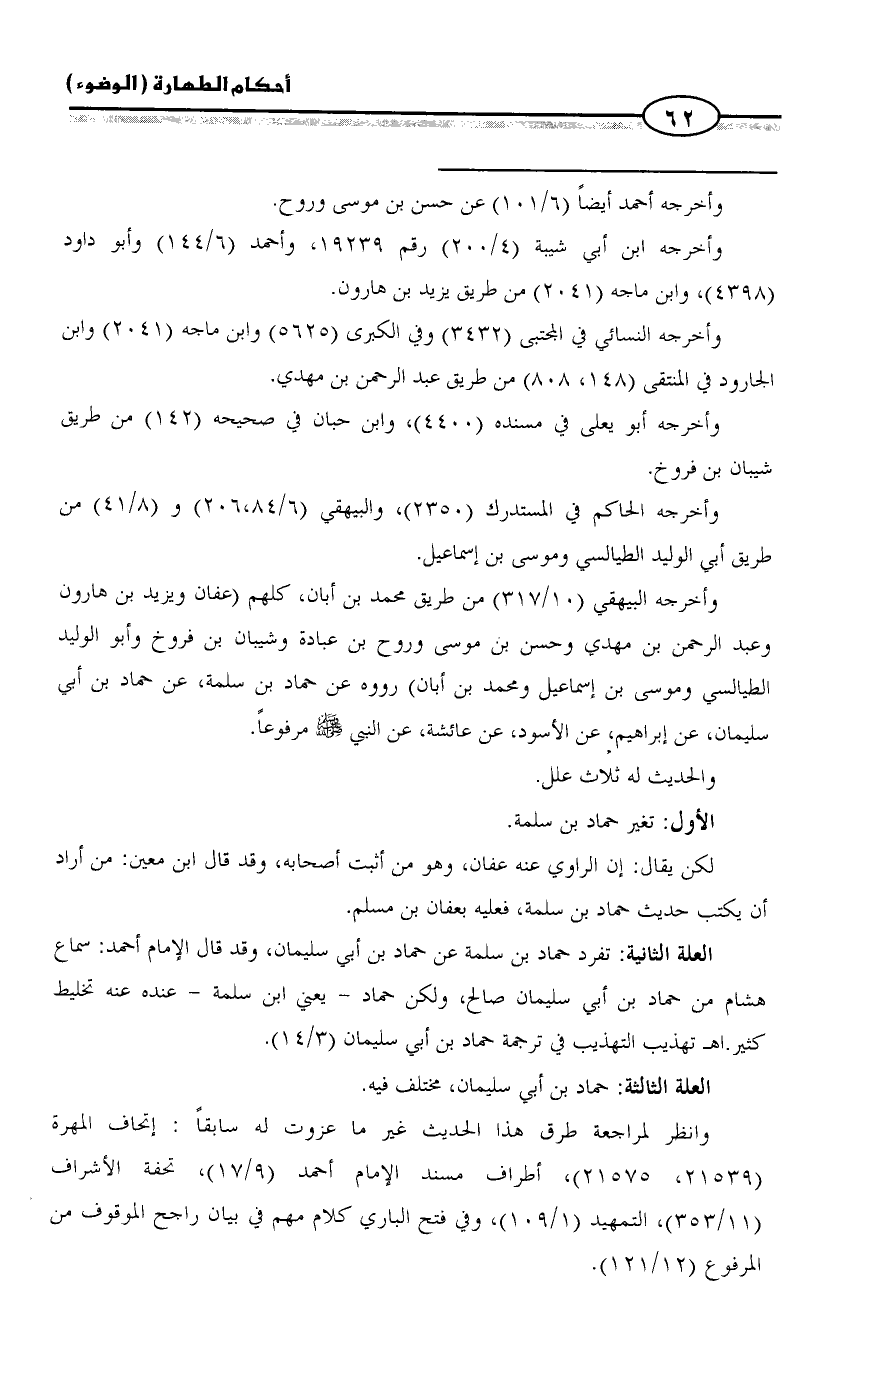 أحكام الطهارة (الوضوء)
٦٢
وأخرجه أحمد أيضاً (١٠١/٦) عن حسن بن موسى وروح.
وأخرجه ابن أبي شيبة (٢٠٠/٤) رقم ١٩٢٣٩، وأحمد (١٤٤/٦) وأبو داود
(٤٣٩٨)، وابن ماجه (٢٠٤١) من طريق يزيد بن هارون.
وأخرجه النسائي في المجتبى (٣٤٣٢) وفي الكبرى (٥٦٢٥) وابن ماجه (٢٠٤١) وابن
الجارود في المنتقى (١٤٨، ٨٠٨) من طريق عبد الرحمن بن مهدي.
وأخرجه أبو يعلى في مسنده (٤٤٠٠)، وابن حبان في صحيحه (١٤٢) من طريق
شيبان بن فروخ.
وأخرجه الحاكم في المستدرك (٢٣٥٠)، والبيهقي (٢٠٦،٨٤/٦) و (٤١/٨) من
طريق أبي الوليد الطيالسي وموسى بن إسماعيل.
وأخرجه البيهقي (٣١٧/١٠) من طريق محمد بن أبان، كلهم (عفان ويزيد بن هارون
وعبد الرحمن بن مهدي وحسن بن موسى وروح بن عبادة وشيبان بن فروخ وأبو الوليد
الطيالسي وموسى بن إسماعيل ومحمد بن أبان) رووه عن حماد بن سلمة، عن حماد بن أبي
سليمان، عن إبراهيم، عن الأسود، عن عائشة، عن النبي ﷺ مرفوعاً.
والحديث له ثلاث علل.
الأول: تغير حماد بن سلمة.
لكن يقال: إن الراوي عنه عفان، وهو من أثبت أصحابه، وقد قال ابن معين: من أراد
أن يكتب حديث حماد بن سلمة، فعليه بعفان بن مسلم.
العلة الثانية: تفرد حماد بن سلمة عن حماد بن أبي سليمان، وقد قال الإمام أحمد: سماع
هشام من حماد بن أبي سليمان صالح، ولكن حماد - يعني ابن سلمة - عنده عنه تخليط
كثير.اهـ تهذيب التهذيب في ترجمة حماد بن أبي سليمان (١٤/٣).
العلة الثالثة: حماد بن أبي سليمان، مختلف فيه.
وانظر لمراجعة طرق هذا الحديث غير ما عزوت له سابقاً : إتحاف المهرة
(٢١٥٣٩، ٢١٥٧٥)، أطراف مسند الإمام أحمد (١٧/٩)، تحفة الأشراف
(٣٥٣/١١)، التمهيد (١٠٩/١)، وفي فتح الباري كلام مهم في بيان راجح الموقوف من
المرفوع (١٢١/١٢).